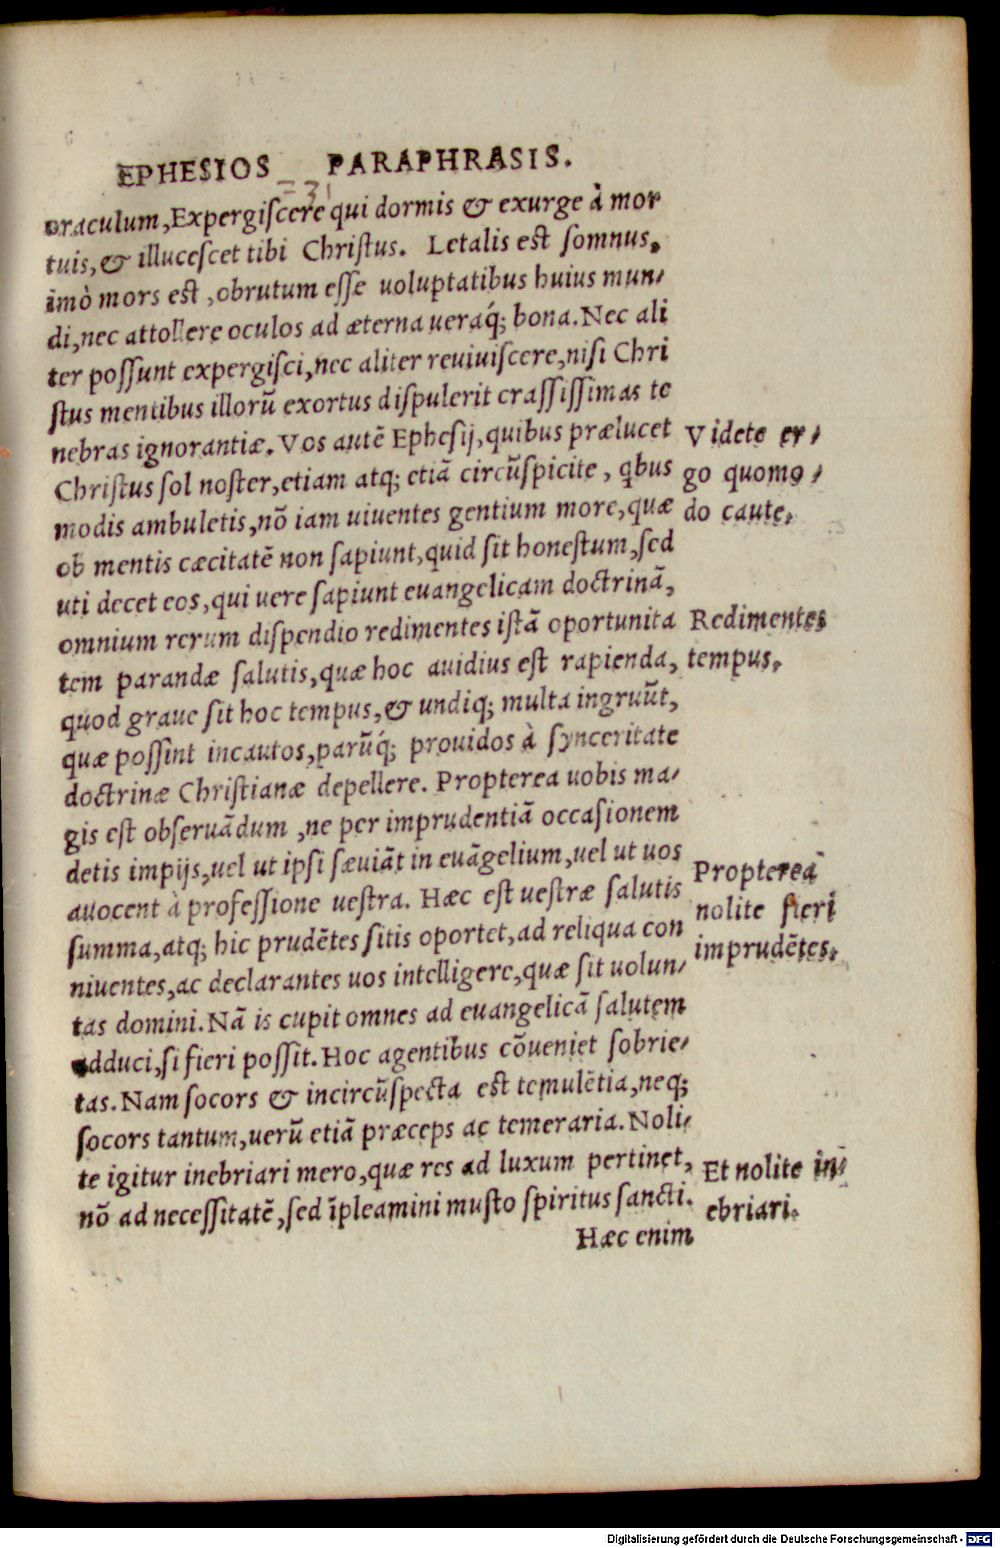 EPHESIOS PARAPHRASIS.
=31
oraculum, Expergiſcere qui dormis & exurge à mor
tuis, & illuceſcet tibi Chriſtus. Letalis est ſomnus,
imò mors est, obrutum eſſe uoluptatibus huius mun/
di, nec attollere oculos ad æterna ueraq́; bona. Nec ali
ter poſſunt expergiſci, nec aliter reuiuiſcere, niſi Chri
ſtus mentibus illorũ exortus diſpulerit craſſiſſimas te
nebras ignorantiæ. Vos autẽ Epheſij, quibus prælucet
Chriſtus ſol noſter, etiam atq; etiã circũſpicite, qbus
modis ambuletis, nõ iam uiuentes gentium more, quæ
ob mentis cæcitatẽ non ſapiunt, quid ſit honeſtum, ſed
uti decet eos, qui uere ſapiunt euangelicam doctrinã,
omnium rerum diſpendio redimentes iſtã oportunita
tem parandæ ſalutis, quæ hoc auidius est rapienda,
quod graue ſit hoc tempus, & undiq; multa ingruũt,
quæ poſſint incautos, parũq́; prouidos à ſynceritate
doctrinæ Chriſtianæ depellere. Propterea uobis ma/
gis est obſeruãdum, ne per imprudentiã occaſionem
detis impijs, uel ut ipſi ſæuiãt in euãgelium, uel ut uos
auocent à profeſſione ueſtra. Hæc est ueſtræ ſalutis
ſumma, atq; hic prudẽtes ſitis oportet, ad reliqua con
niuentes, ac declarantes uos intelligere, quæ ſit uolun/
tas domini. Nã is cupit omnes ad euangelicã ſalutem
adduci, ſi fieri poſſit. Hoc agentibus cõueniet ſobrie/
tas. Nam ſocors & incircũſpecta est temulẽtia, neq;
ſocors tantum, uerũ etiã præceps ac temeraria. Noli/
te igitur inebriari mero, quæ res ad luxum pertinet,
nõ ad neceſſitatẽ, ſed ĩpleamini muſto ſpiritus ſancti.
Hæc enim
Videte er/
go quomo/
do caute,
Redimentes
tempus,
Propterea
nolite fieri
imprudẽtes,
Et nolite in/
ebriari.
Digitalisierung gefördert durch die Deutsche Forschungsgemeinschaft - DFG